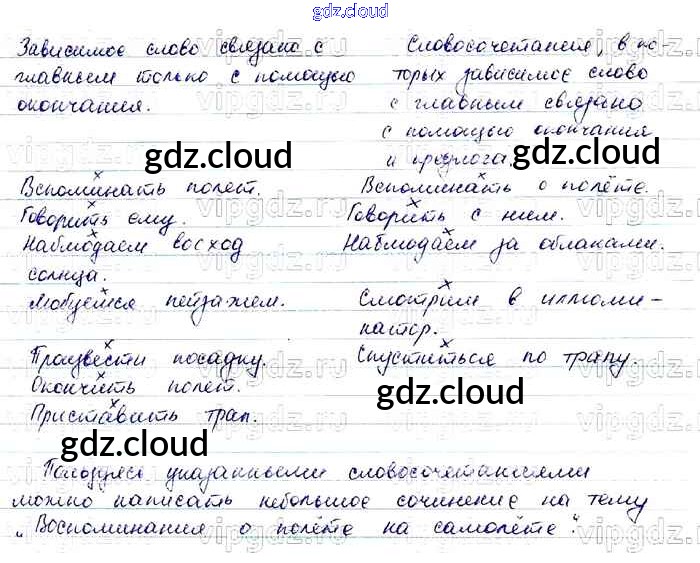 gdz.cloud
Зависимое слово связано с
главным только с помощью
окончания.
Словосочетания, в ко-
торых зависимое слово
с главным связано
с помощью окончания
и предлога.
gdz.cloud
gdz.cloud
Вспоминать полёт.
Вспоминать о полёте.
Говорить ему.
Говорить с ним.
Наблюдаем восход
солнца.
Наблюдаем за облаками.
Любуемся пейзажем.
Смотрим в иллюми-
натор.
Произвести посадку.
Спуститься по трапу.
Окончить полёт.
Приставить трап.
gdz.cloud
gdz.cloud
Пользуясь указанными словосочетаниями
можно написать небольшое сочинение на тему
„Воспоминания о полёте на самолёте".
vipgdz.ru